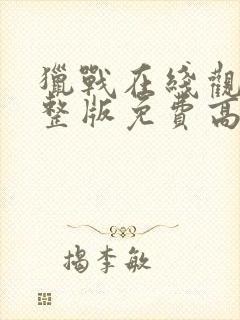 獵戰在綫觀
整版免費高
揭李敏